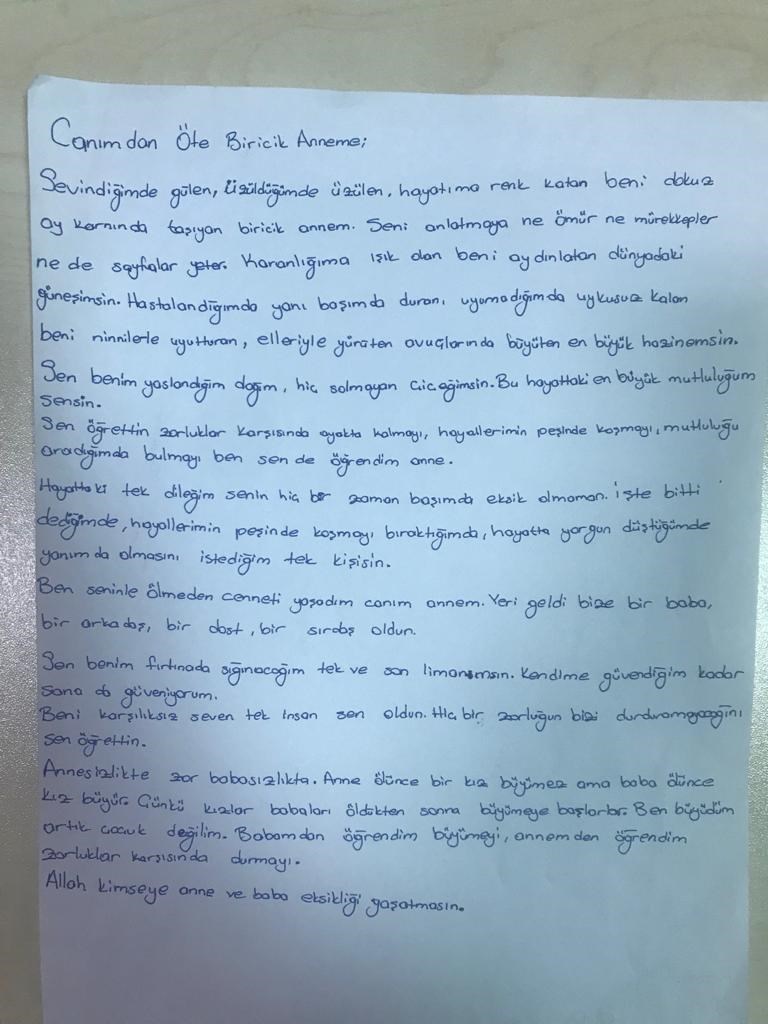 Canımdan Öte Biricik Anneme;
Sevindiğimde gülen, Üzüldüğümde üzülen, hayatıma renk katan beni dokuz
ay karnında taşıyan biricik annem. Seni anlatmaya ne ömür ne mürekkepler
ne de sayfalar yeter. Karanlığıma ışık olan beni aydınlatan dünyadaki
güneşimsin. Hastalandığımda yanı başımda duran, uyumadığımda uykusuz kalan
beni ninnilerle uyutturan, elleriyle yürüten avuçlarında büyüten en büyük hazinemsin.
Sen benim yaslandığım dağım, hiç solmayan çiçeğimsin. Bu hayattaki en büyük mutluluğum
sensin.
Sen öğrettin zorluklar karşısında ayakta kalmayı, hayallerimin peşinde koşmayı, mutluluğu
aradığımda bulmayı ben sen de öğrendim anne.
Hayattaki tek dileğim senin hiç bir zaman başımda eksik olmaman. İşte bitti
dediğimde, hayallerimin peşinde koşmayı bıraktığımda, hayatta yorgun düştüğümde
yanımda olmasını istediğim tek kişisin.
Ben seninle ölmeden cenneti yaşadım canım annem. Yeri geldi bize bir baba,
bir arkadaş, bir dost, bir sırdaş oldun.
Sen benim fırtınada sığınacağım tek ve son limanımsın. Kendime güvendiğim kadar
sana da güveniyorum.
Beni karşılıksız seven tek insan sen oldun. Hiç bir zorluğun bizi durduramayacağını
sen öğrettin.
Annesizlikte zor babasızlıkta. Anne ölünce bir kız büyümez ama baba ölünce
kız büyür. Çünkü kızlar babaları öldükten sonra büyümeye başlarlar. Ben büyüdüm
artık çocuk değilim. Babamdan öğrendim büyümeyi, annemden öğrendim
zorluklar karşısında durmayı.
Allah kimseye anne ve baba eksikliği yaşatmasın.